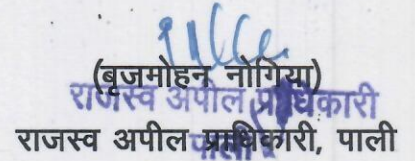 (बृजमोहन नोगिया)
राजस्व अपील प्राधिकारी
राजस्व अपील प्राधिकारी, पाली
पाली